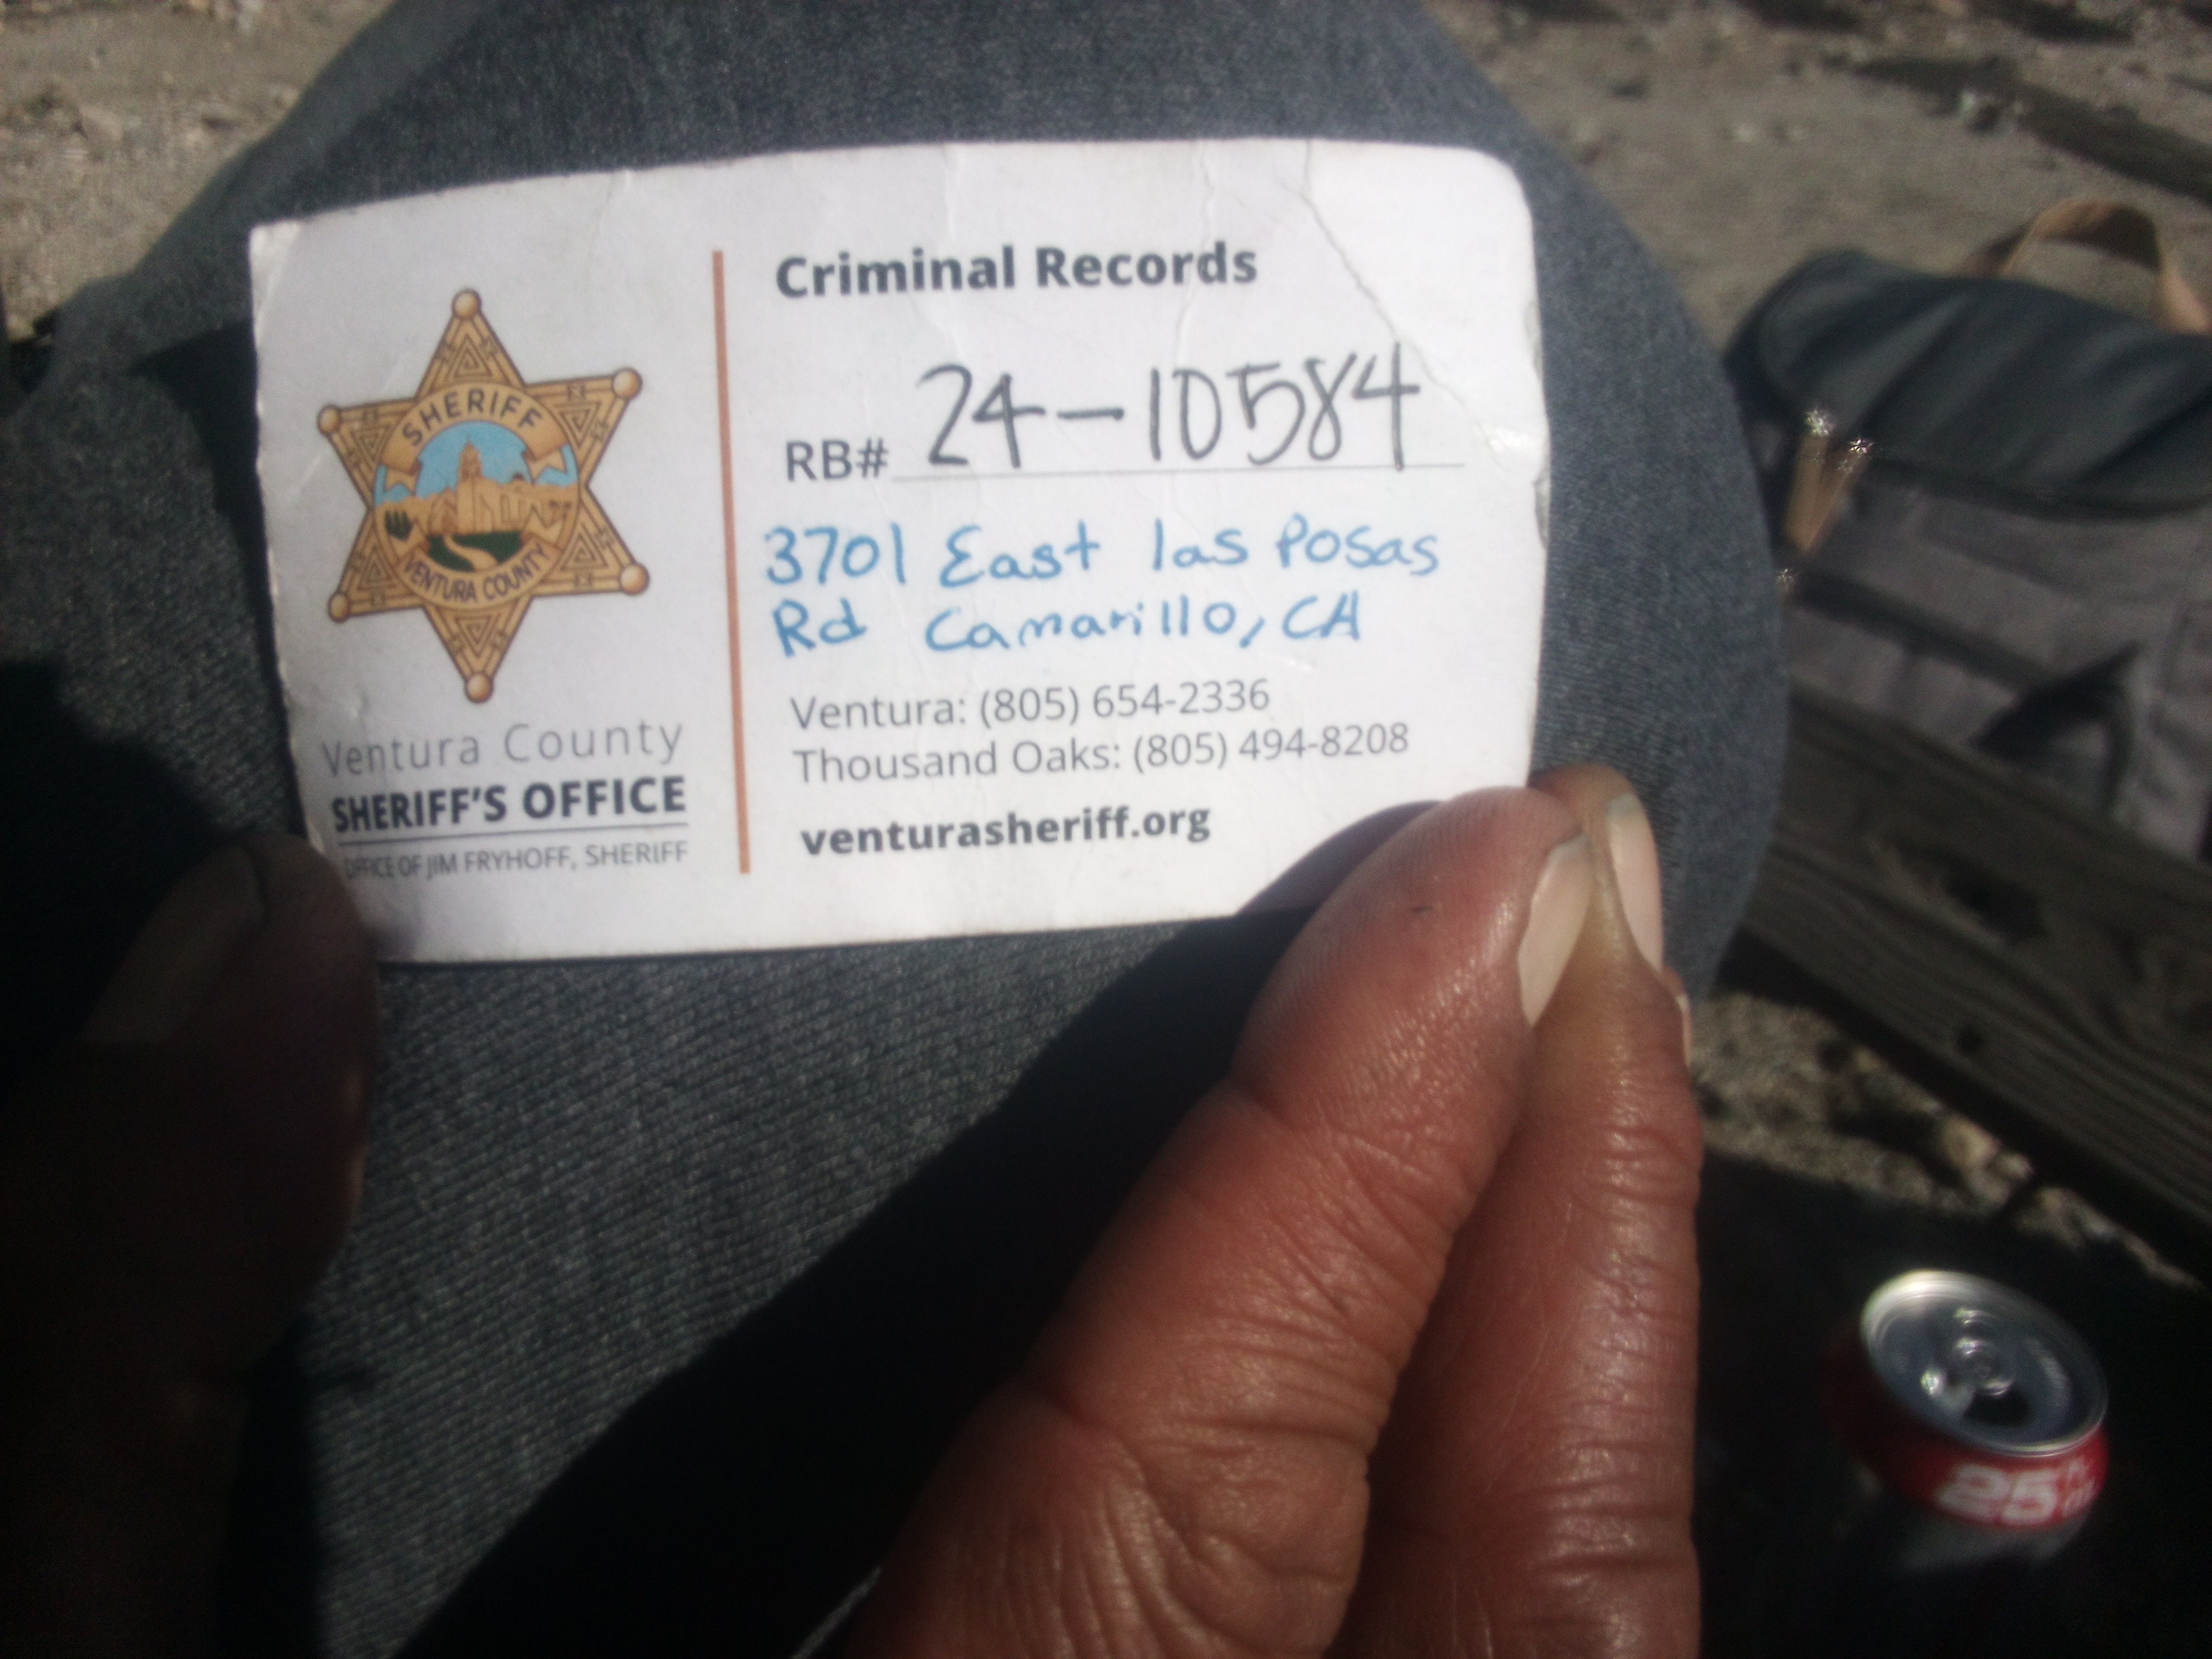 SHERIFF
VENTURA COUNTY
Ventura County
SHERIFF'S OFFICE
OFFICE OF JIM FRYHOFF, SHERIFF
Criminal Records
RB# 24-10584
3701 East las Posas
Rd Camarillo, CA
Ventura: (805) 654-2336
Thousand Oaks: (805) 494-8208
venturasheriff.org
25